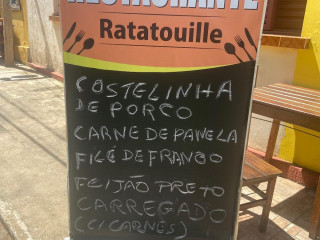 RESTAURANTE
Ratatouille
COSTELINHA
DE PORCO
CARNE DE PANELA
FILÉ DE FRANGO
FEIJÃO PRETO
CARREGADO
(C/CARNES)